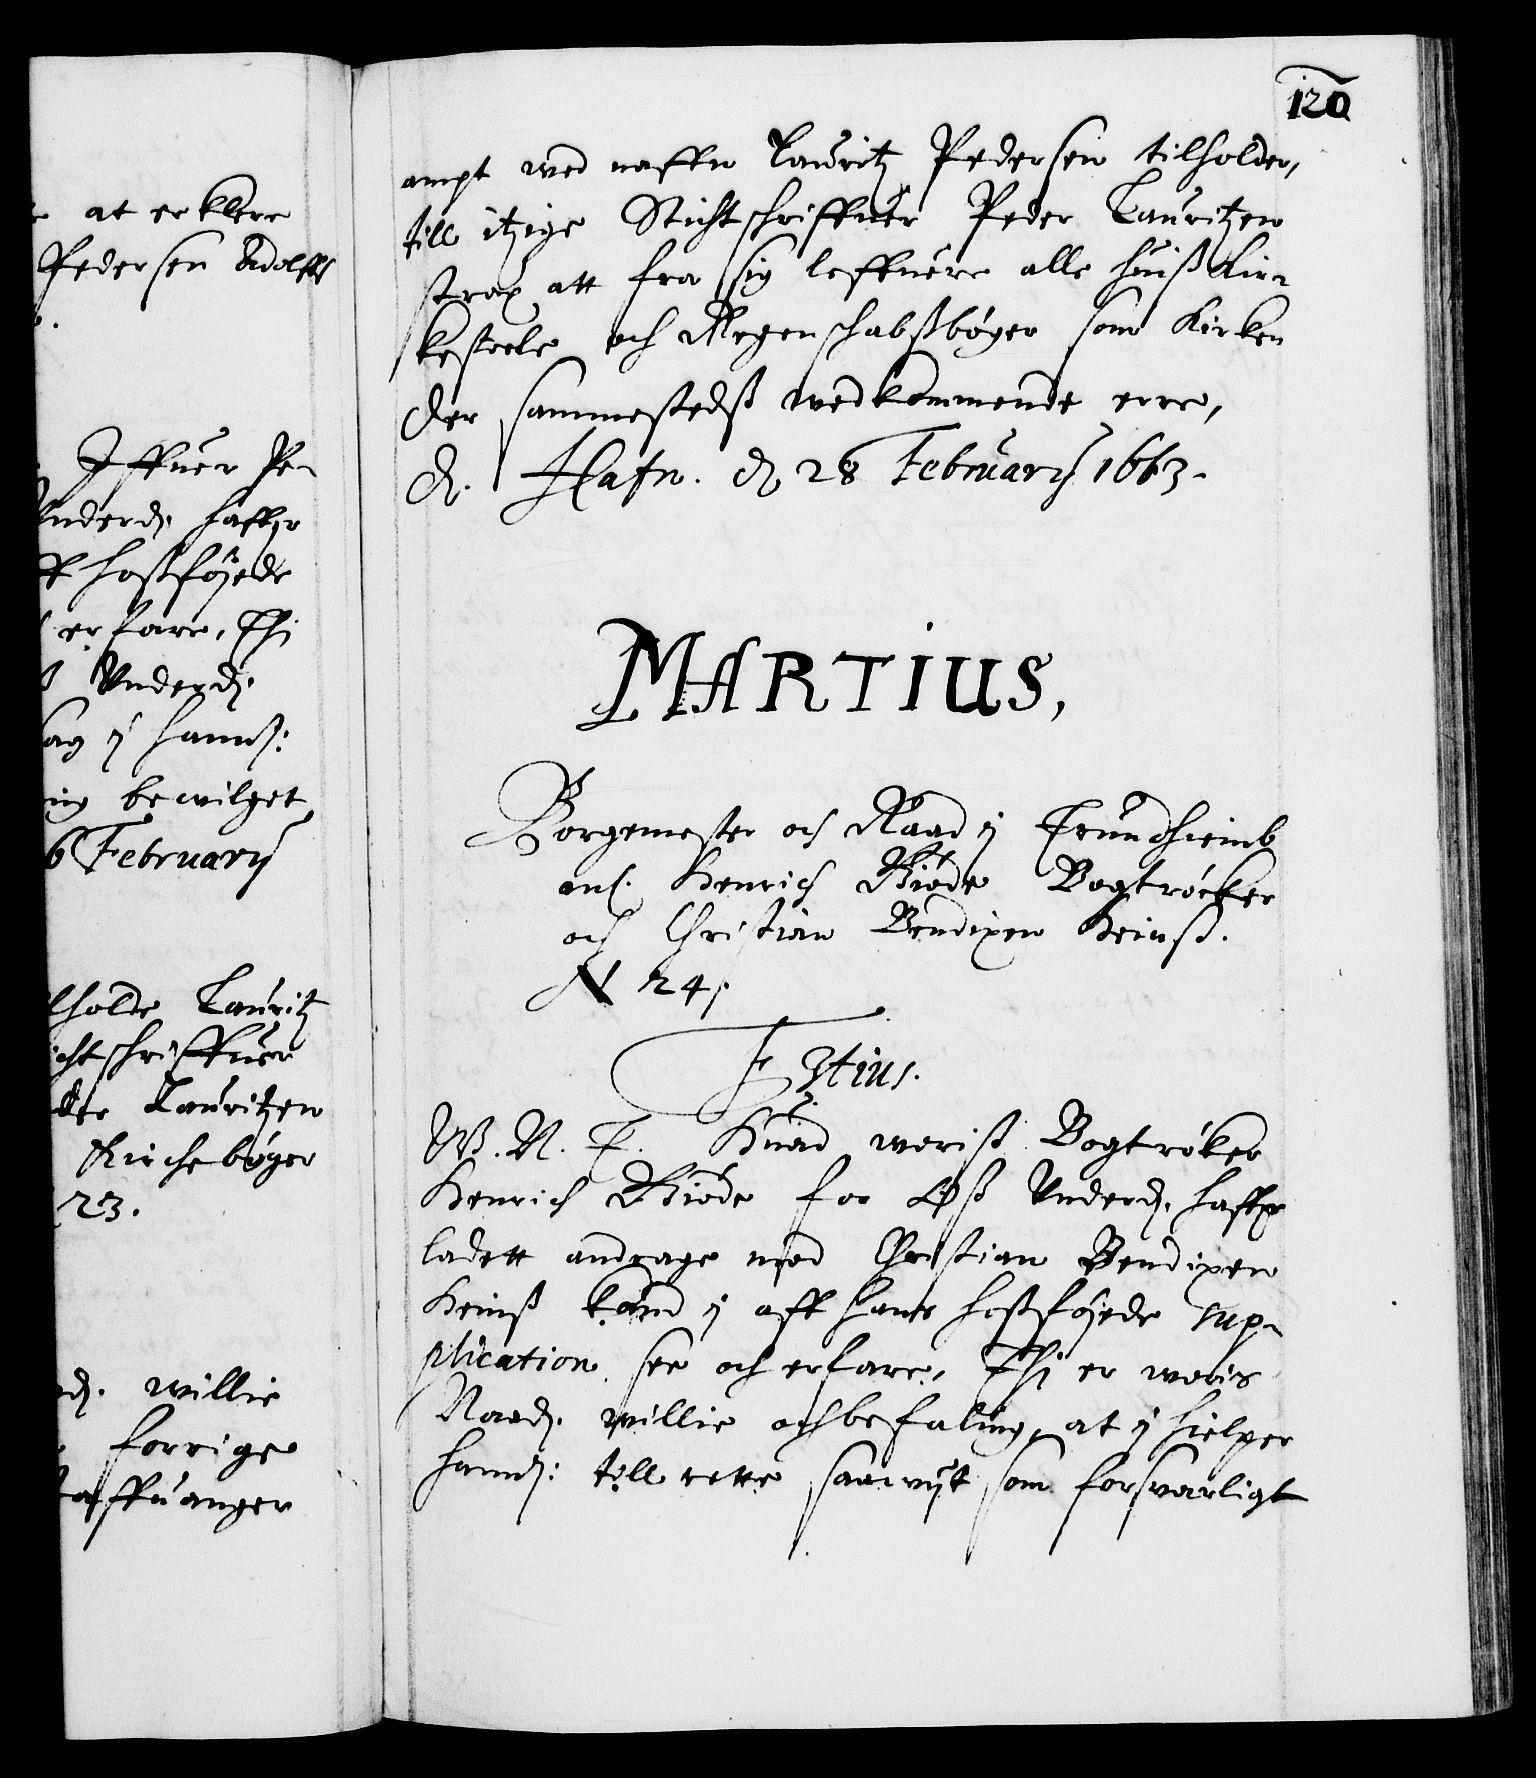 at erklere
Pedersen Adolffs
Iffuer Pe-
Underd. haffr
hoßføjede
erfare, Thi
Underd.
sag ij hannß:
bewilget
6 February
lholde Lauritz
ichtschriffuer
Lauritzen
Kirchebøger
23.
willie
forrige
affuanger
120
ampt wed naffn Lauritz Pedersen tilholder,
till itzige Stichtschriffuer Peder Lauritzen
strax att fra sig leffuere alle huiß Kir-
kestoele och Regenschabßbøger som Kirken
der sammestedß wedkommende erre,
d. Hafn. d 28 February 1663.
MARTIUS,
Borgemester och Raad ij Trundhiemb
anl. Henrich Kiøde Bogtrøcker
och Christian Bendixen Heinß.
N 24.
F 3tius.
W. N. T. Huad woriß Bogtrøker
Henrich Kiøde for Oß Underd. haffr
ladett andrage mod Christian Bendixen
Heinß kand ij aff hans hoßføjede sup-
plication see och erfare, Thi er woris
Naad. willie och befaling, at ij hielper
hannd: till rette saawijt som forsvarligt